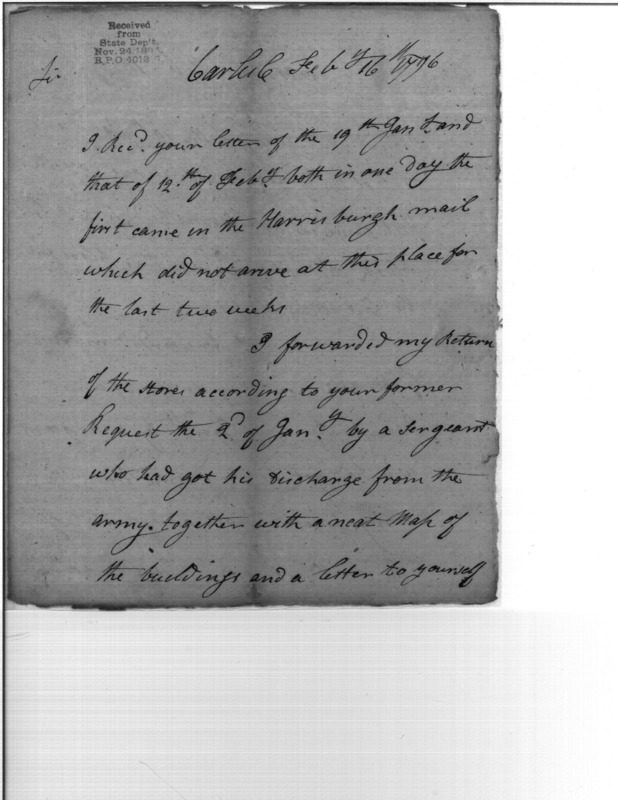 Received
from
State Dep't.
Nov. 24, 18
R.P.O. 4012
Sir
Carlisle Feby. 16th 1796
I Recd. your letter of the 19th Jany. and
that of 12th of Feby. both in one Day the
first came in the Harrisburgh mail
which did not arive at this place for
the last two weeks
I forwarded my Return
of the stores according to your former
Request the 2d of Jany. by a sergeant
who had got his discharge from the
army. together with a neat Map of
the buildings and a letter to yourself